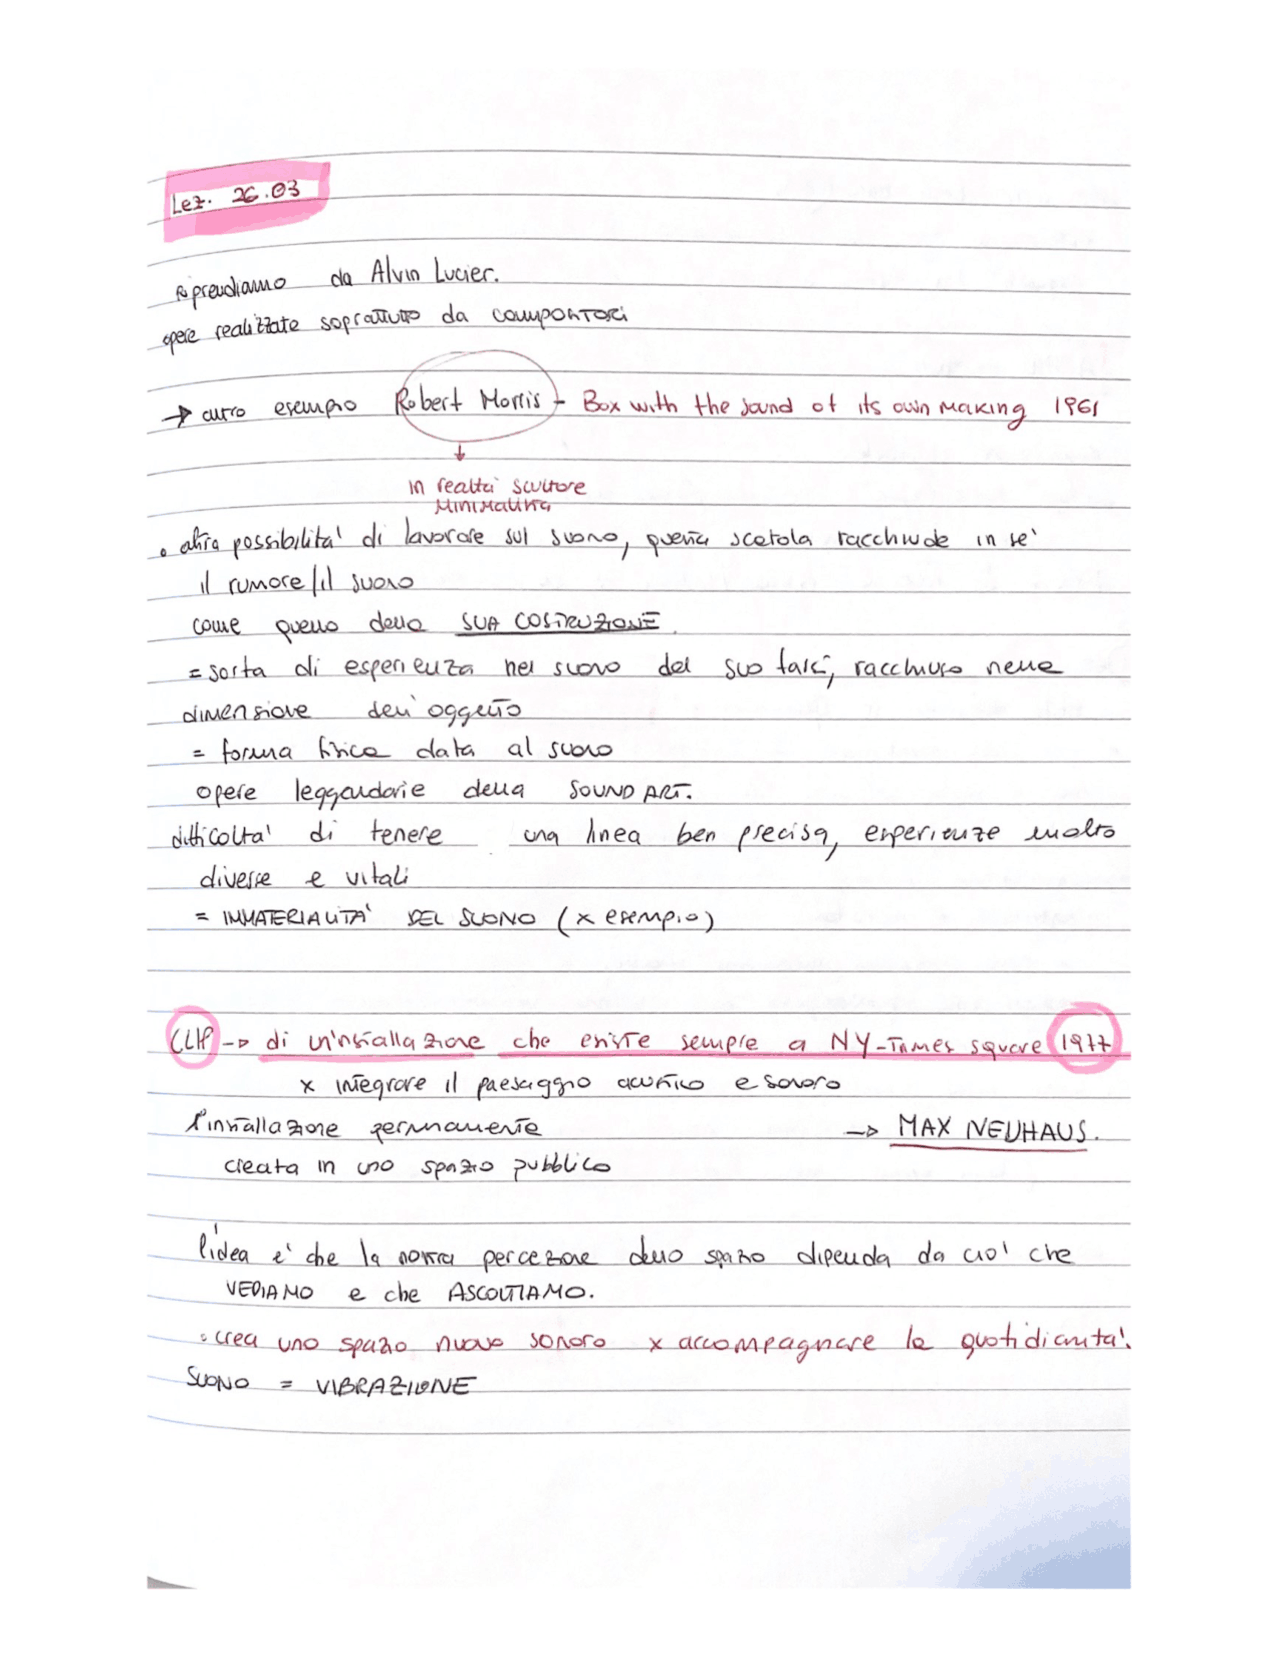 Lez. 26.03
Riprendiamo da Alvin Lucier.
opere realizzate soprattutto da compositori
→ altro esempio Robert Morris - Box with the sound of its own making 1961
↓
in realtà scultore
minimalista
• altra possibilità di lavorare sul suono, questa scatola racchiude in se'
il rumore/il suono
come quello della SUA COSTRUZIONE.
= sorta di esperienza nel suono del suo farsi, racchiuso nelle
dimensione dell'oggetto
= forma fisica data al suono
opere leggendarie della SOUND ART.
difficoltà di tenere una linea ben precisa, esperienze molto
diverse e vitali
= IMMATERIALITA' DEL SUONO (x esempio)
CLIP → di un'installazione che esiste sempre a NY-Times square 1977
x integrare il paesaggio acustico e sonoro
l'installazione permanente → MAX NEUHAUS.
creata in uno spazio pubblico
l'idea e' che la nostra percezione dello spazio dipenda da cio' che
VEDIAMO e che ASCOLTIAMO.
• crea uno spazio nuovo sonoro x accompagnare la quotidianita'.
SUONO = VIBRAZIONE